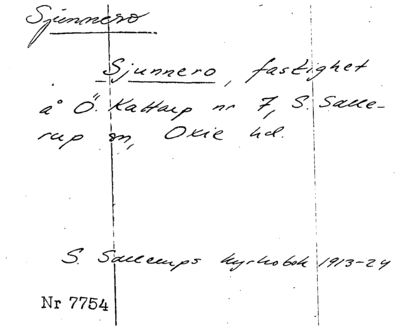 Sjunnero
Sjunnero, fastighet
å Ö. Kattarp nr 7, S. Salle-
rup sn, Oxie hd.
S. Sallerups kyrkobok 1913-24
Nr 7754